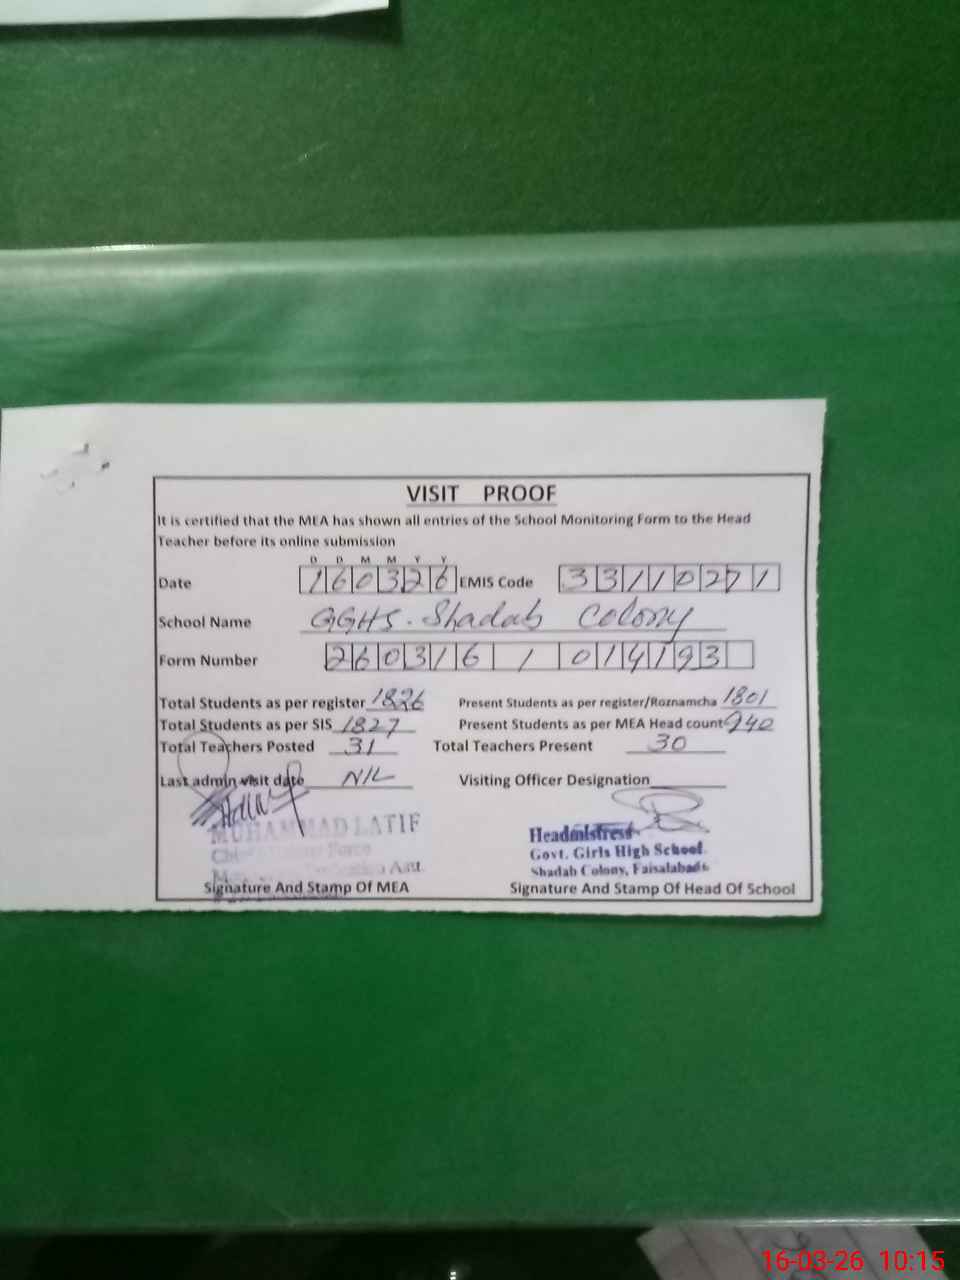 VISIT PROOF
It is certified that the MEA has shown all entries of the School Monitoring Form to the Head
Teacher before its online submission
D D M M Y Y
Date 160326 EMIS Code 33110271
School Name GGHS. Shadab Colony
Form Number 260316 / 014193
Total Students as per register 1826 Present Students as per register/Roznamcha 1801
Total Students as per SIS 1827 Present Students as per MEA Head count 940
Total Teachers Posted 31 Total Teachers Present 30
Last admin visit date NIL Visiting Officer Designation
MUHAMMAD LATIF Headmistress
Govt. Girls High School
Shadab Colony, Faisalabad
Signature And Stamp Of MEA Signature And Stamp Of Head Of School
16-03-26 10:15